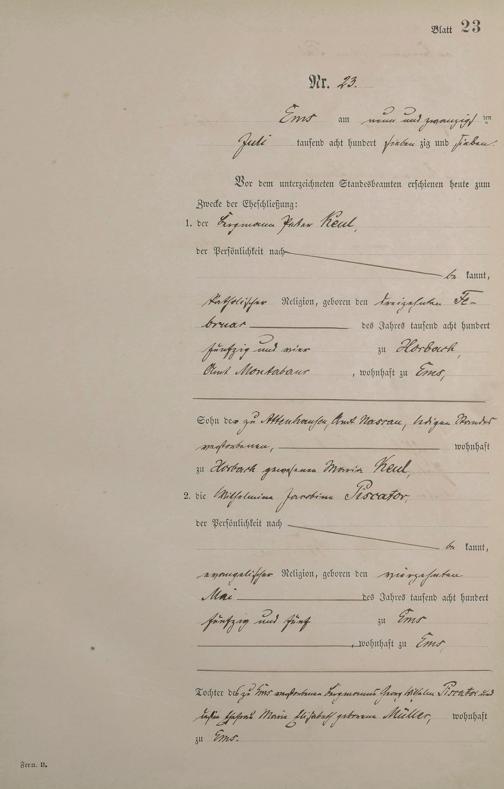 Blatt 23
Nr. 23.
Ems am neun und zwanzigsten
Juli tausend acht hundert siebenzig und sieben.
Vor dem unterzeichneten Standesbeamten erschienen heute zum
Zwecke der Eheschließung:
1. der Bergmann Peter Keul,
der Persönlichkeit nach
bekannt,
katholischer Religion, geboren den dreizehnten Fe-
bruar des Jahres tausend acht hundert
fünfzig und vier zu Horbach,
Amt Montabaur, wohnhaft zu Ems,
Sohn der zu Attenhausen, Amt Nassau, ledigen Standes
verstorbenen, wohnhaft
zu Horbach gewesenen Maria Keul,
2. die Wilhelmina Jacobina Piscator,
der Persönlichkeit nach
bekannt,
evangelischer Religion, geboren den vierzehnten
Mai des Jahres tausend acht hundert
fünfzig und fünf zu Ems
, wohnhaft zu Ems,
Tochter des zu Ems verstorbenen Bergmanns Georg Wilhelm Piscator und
dessen Ehefrau Maria Elisabeth geborene Müller, wohnhaft
zu Ems.
Form. B.